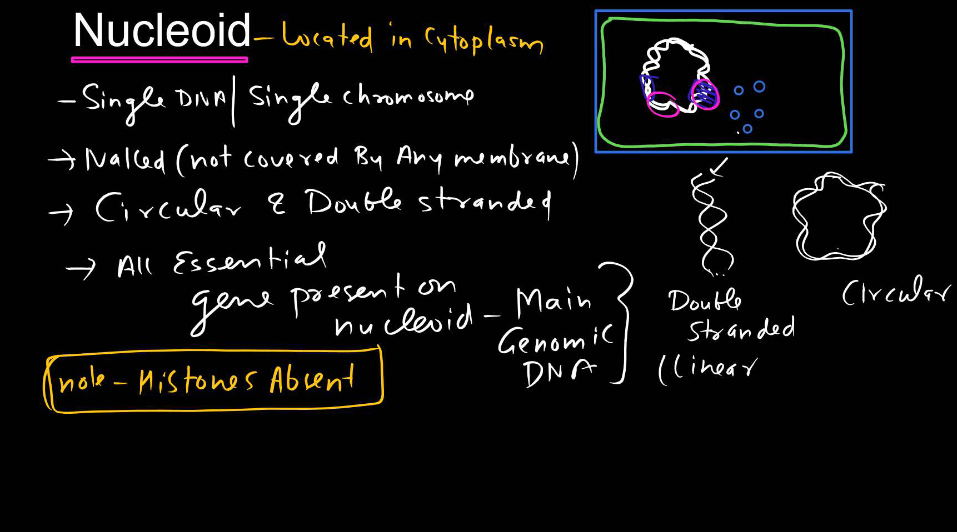 Nucleoid - Located in Cytoplasm
- Single DNA | Single chromosome
→ Naked (not covered By Any membrane)
→ Circular & Double stranded
→ All Essential
gene present on
nucleoid - Main
Genomic
DNA
note - Histones Absent
Double
Stranded
(Linear
Circular